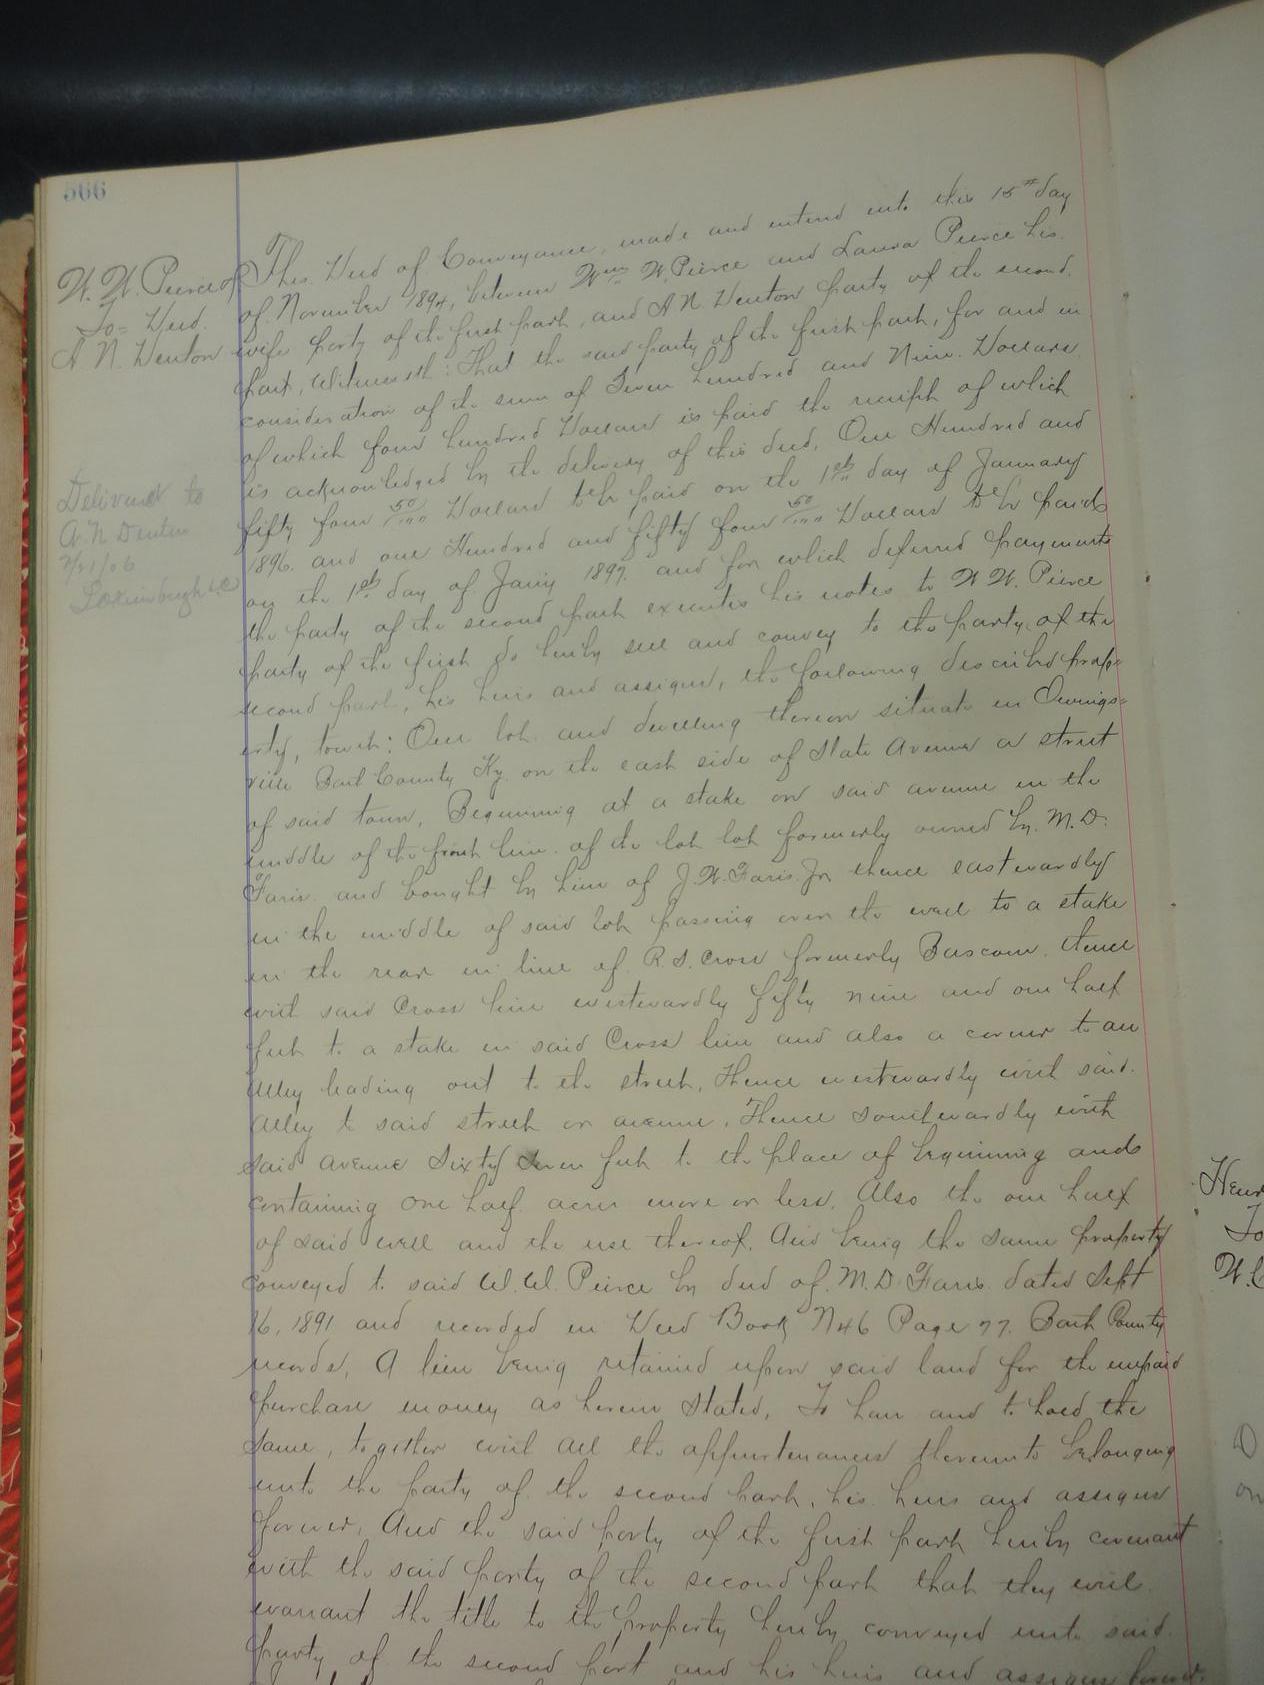 566
W. W. Peirce &
To = Deed.
A. N. Denton
Delivered to
A. N. Denton
2/21/06
This Deed of Conveyance, made and entered into this 15th day
of November 1894, between Wm W. Peirce and Laura Peirce his
wife party of the first part, and A N. Denton party of the second
part, Witnesseth: That the said party of the first part, for and in
consideration of the sum of Seven hundred and Nine Dollars
of which four hundred Dollars is paid the receipt of which
is acknowledged by the delivery of this deed, One Hundred and
fifty four 50/100 Dollars to be paid on the 1st day of January
1896. and one Hundred and fifty four 50/100 Dollars to be paid
on the 1st day of Jany 1897. and for which deferred payments
the party of the second part executes his notes to W W. Pierce
party of the first do hereby sell and convey to the party of the
second part, his heirs and assigns, the following described prop=
erty, towit: One lot and dwelling thereon situate in Owings=
ville Bath County Ky. on the east side of State Avenue a street
of said town, Beginning at a stake on said avenue in the
middle of the front line of the lot lot formerly owned by M. D.
Faris and bought by him of J. W. Faris Jr thence eastwardly
in the middle of said lot passing over the well to a stake
in the rear in line of R. S. Cross formerly Bascom, thence
with said Cross line westwardly fifty nine and one half
feet to a stake in said Cross line and also a corner to an
alley leading out to the street, thence westwardly with said
alley to said street or avenue, Thence southwardly with
said avenue sixty seven feet to the place of beginning and
containing one half acres more or less. Also the one half
of said well and the use thereof, And being the same property
conveyed to said W. W. Peirce by deed of M. D. Faris dated Sept
16, 1891 and recorded in Deed Book N 46 Page 77. Bath County
records, A lien being retained upon said land for the unpaid
purchase money as herein stated, To have and to hold the
same, together with all the appurtenances thereunto belonging
unto the party of the second part, his heirs and assigns
forever, And the said party of the first part hereby covenant
with the said party of the second part that they will
warrant the title to the property hereby conveyed unto said
party of the second part and his heirs and assigns forever.
Henr
To
W.
on